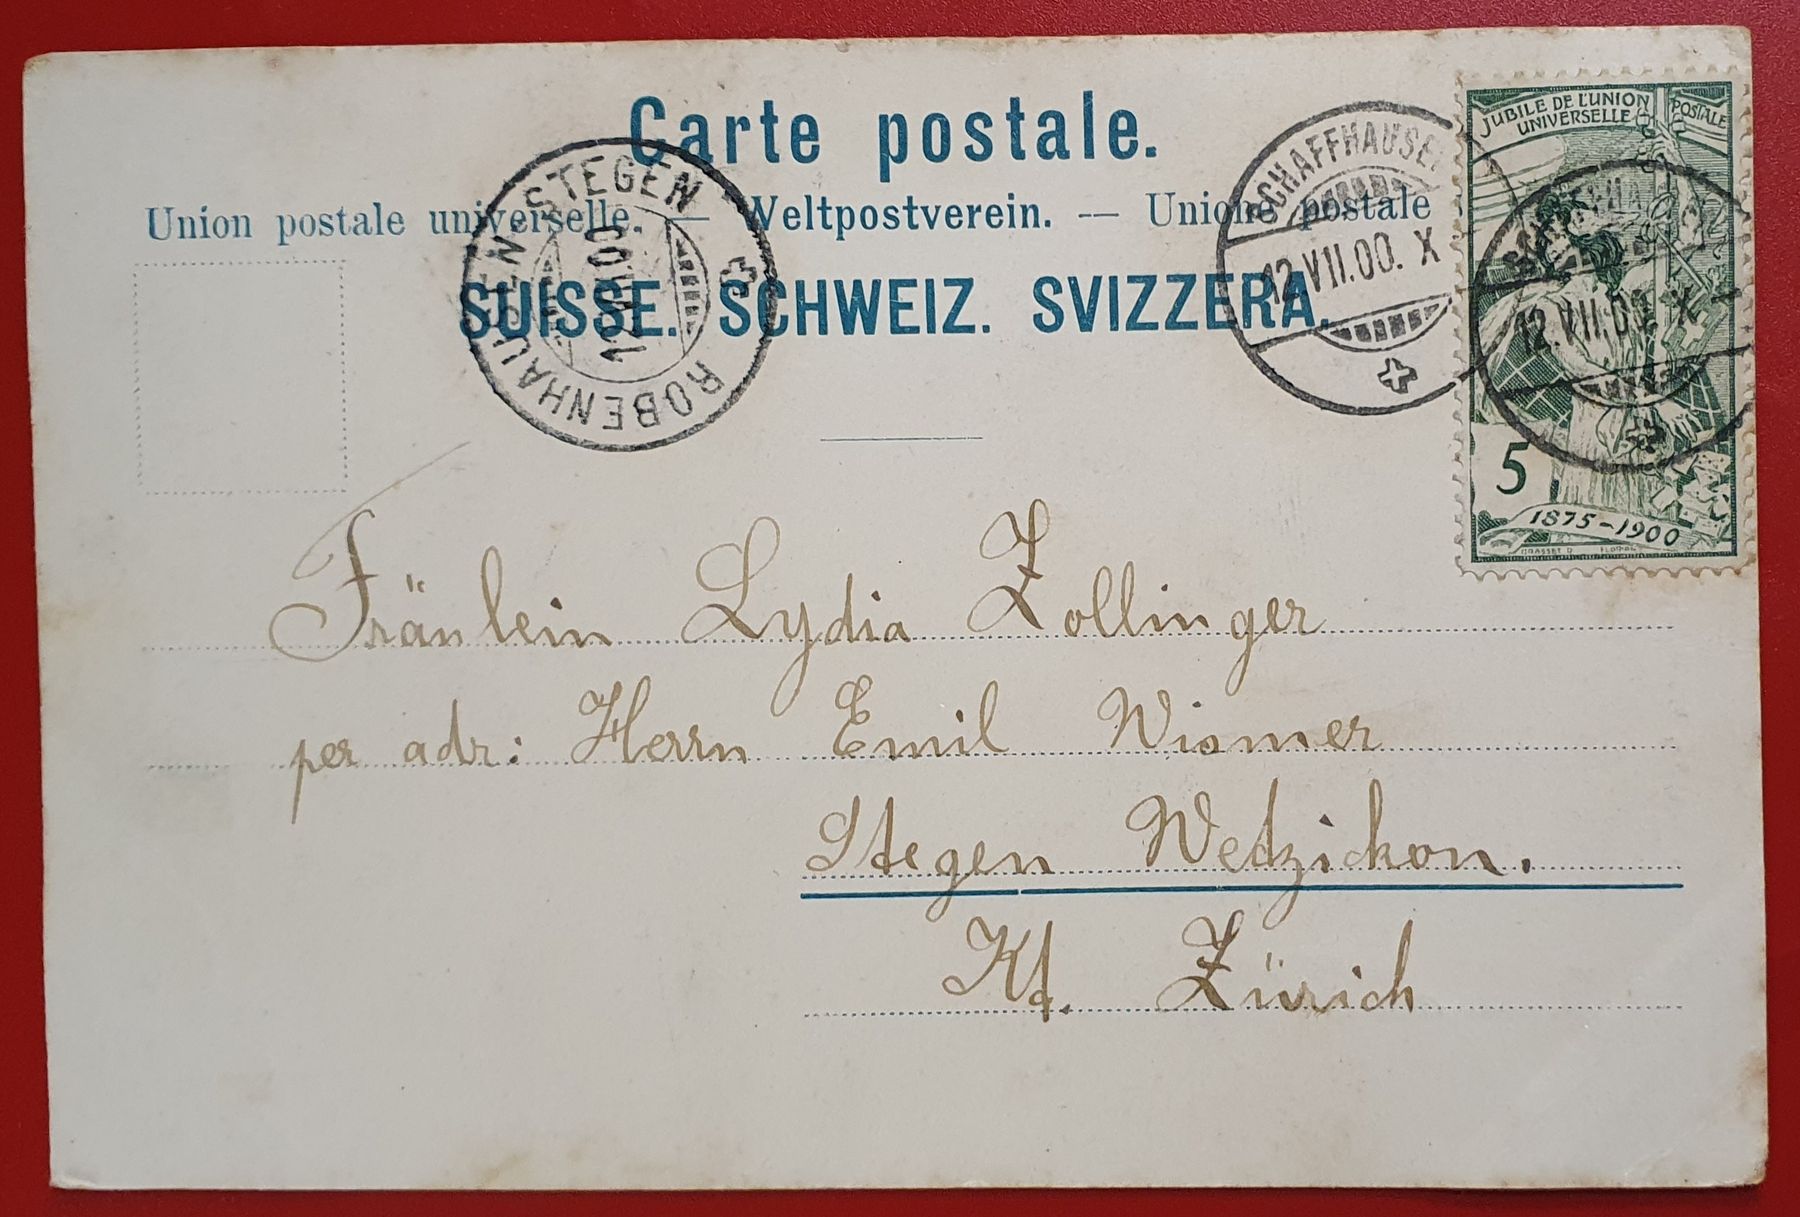 Carte postale.
Union postale universelle. — Weltpostverein. — Unione postale
SUISSE. SCHWEIZ. SVIZZERA.
ROBENHAUSEN-STEGEN
12.VII.00
SCHAFFHAUSEN
12.VII.00. X
SCHAFFHAUSEN
12.VII.00. X
JUBILÉ DE L'UNION POSTALE
UNIVERSELLE
5
1875-1900
GRASSET D
Fräulein Lydia Zollinger
per adr: Herrn Emil Wismer
Stegen Wetzikon.
Kt. Zürich